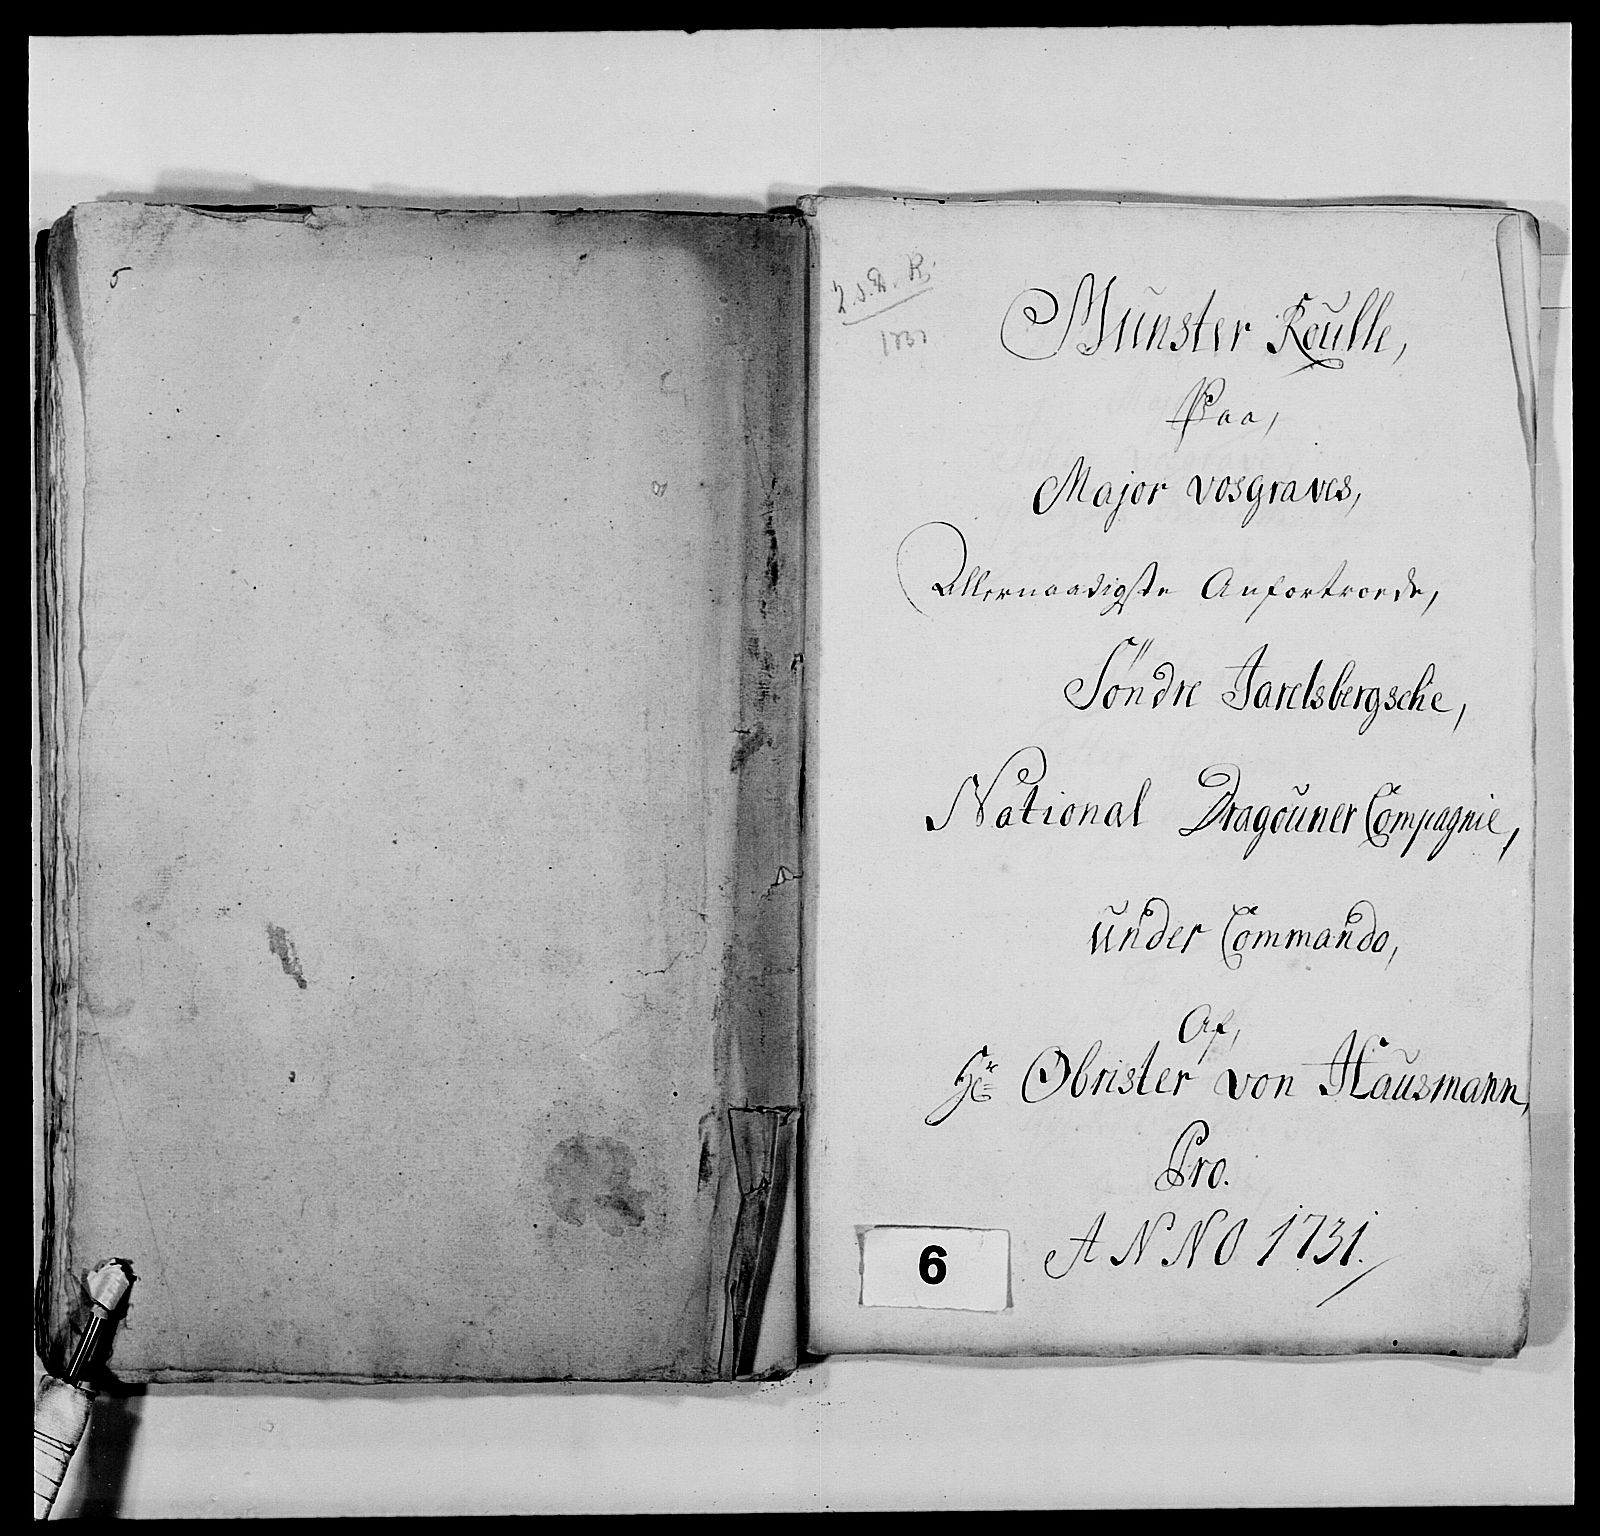 5
2. s. D. R.
1731
Munster Roulle,
Paa,
Major vosgraves,
Allernaadigste Anfortroede,
Söndre Jarelsbergsche,
National Dragouner Compagnie,
under Commando,
Af,
Hr Obrister von Hausmann,
Pro.
ANNO 1731.
6